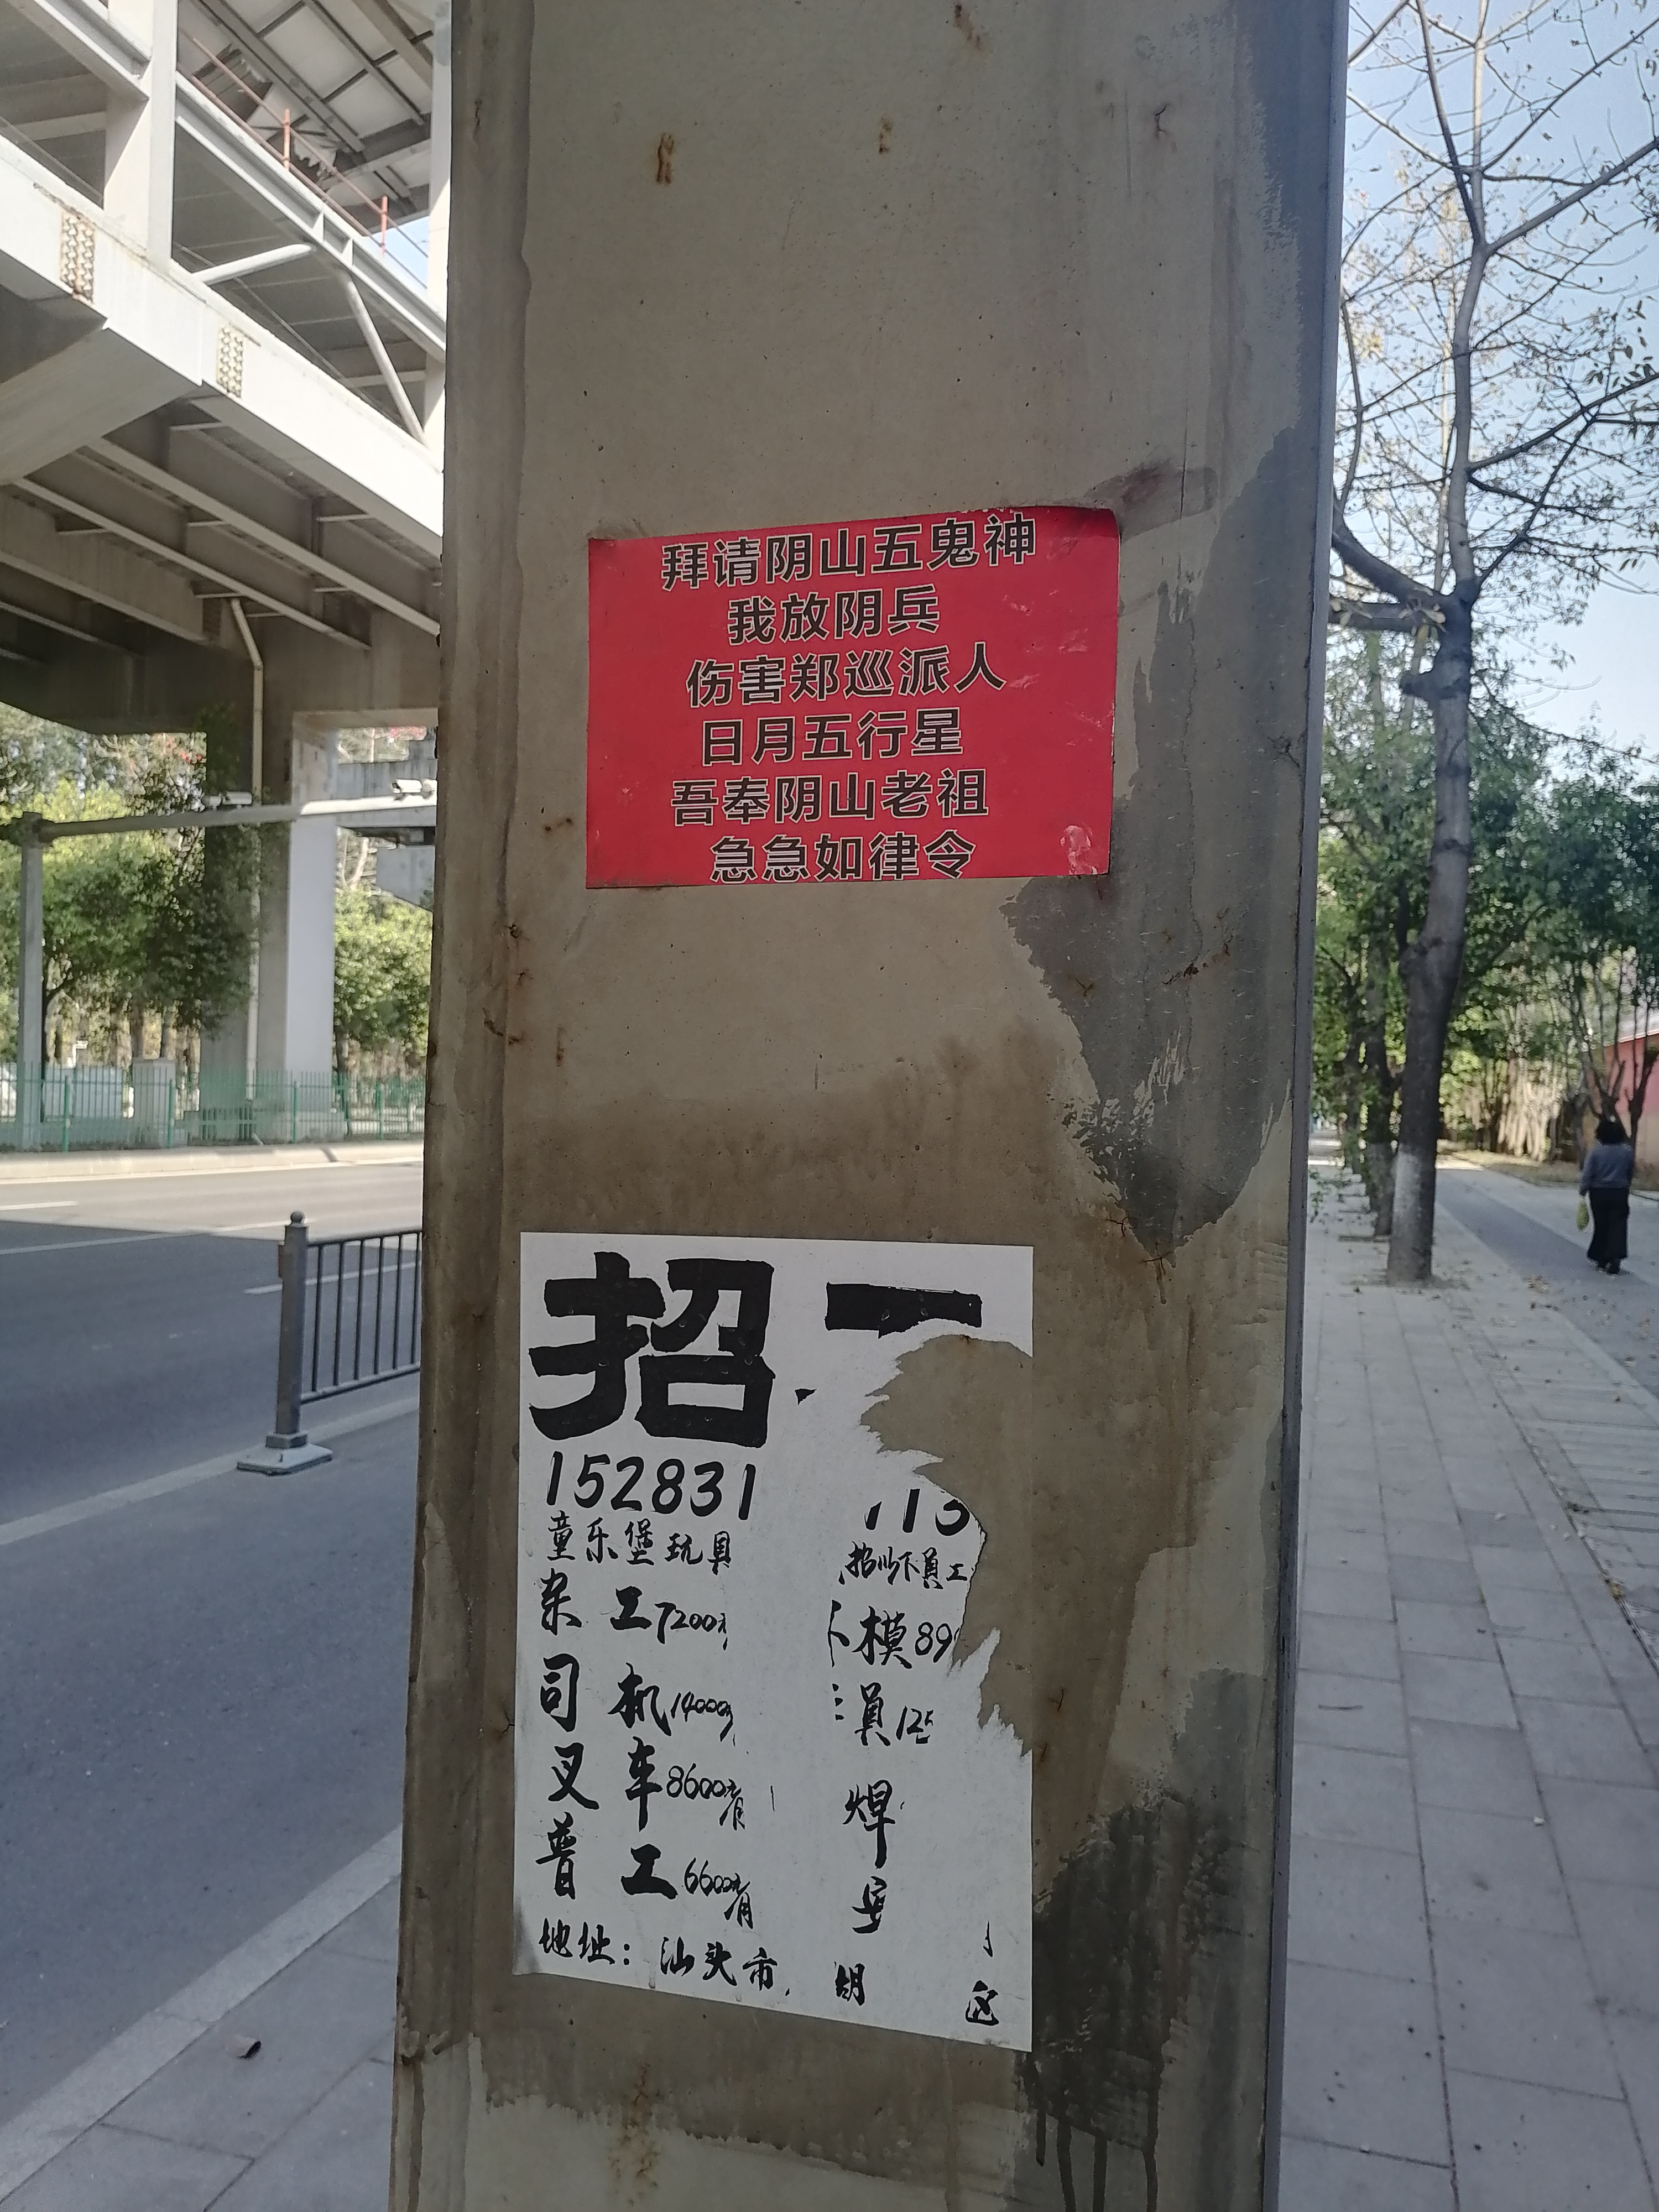 拜请阴山五鬼神
我放阴兵
伤害郑巡派人
日月五行星
吾奉阴山老祖
急急如律令
招
152831 113
童乐堡玩具 招以下員工
杂工7200元 模89
司机14000 員125
叉车8600元/月 焊
普工6600元/月 安
地址：汕头市 胡 区